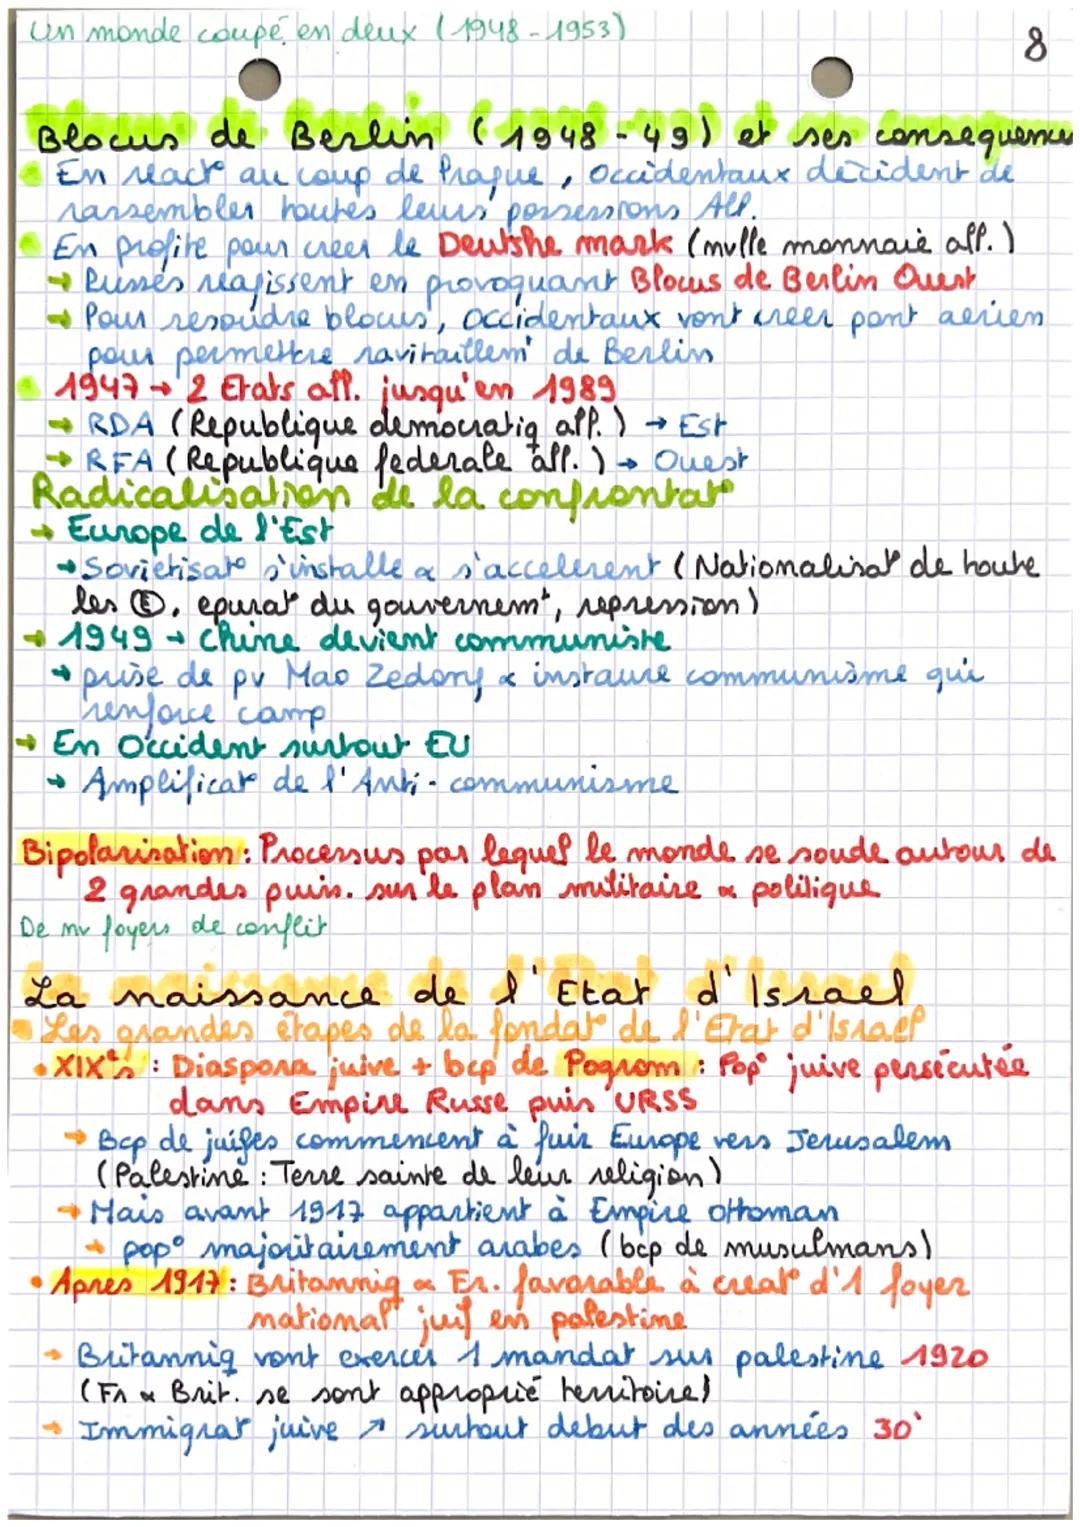 Un monde coupé en deux (1948-1953)
8
Blocus de Berlin (1948-49) et ses consequences
En react° au coup de Prague, Occidentaux décident de
rassembler toutes leurs possessions All.
En profite pour creer le Deutshe mark (nvlle monnaie all.)
→ Russes réagissent en provoquant Blocus de Berlin Ouest
→ Pour resoudre blocus, occidentaux vont creer pont aerien
pour permettre ravitaillemt de Berlin
1947 → 2 Etats all. jusqu'en 1989
→ RDA (Republique democratiq all.) → Est
→ RFA (Republique federale all.) → Ouest
Radicalisation de la confrontat°
→ Europe de l'Est
→ Sovietisat° s'installe & s'accelerent (Nationalisat° de toute
les Ⓔ, epurat° du gouvernemt, repression)
→ 1949 → Chine devient communiste
→ prise de pv Mao Zedong & instaure communisme qui
renforce camp
→ En Occident surtout EU
→ Amplificat° de l'Anti-communisme
Bipolarisation : Processus par lequel le monde se soude autour de
2 grandes puis. sur le plan militaire & politique
De nv foyers de conflit
La naissance de l'Etat d'Israel
Les grandes étapes de la fondat° de l'Etat d'Israel
• XIXe s : Diaspora juive + bcp de Pogrom : Pop° juive persécutée
dans Empire Russe puis URSS
→ Bcp de juifes commencent à fuir Europe vers Jerusalem
(Palestine : Terre sainte de leur religion)
→ Mais avant 1917 appartient à Empire ottoman
→ pop° majoritairement arabes (bcp de musulmans)
• Apres 1917 : Britanniq & Fr. favorable à creat° d'1 foyer
national juif en palestine
→ Britanniq vont exercer 1 mandat sur palestine 1920
(Fr & Brit. se sont approprié territoire)
→ Immigrat° juive ↗ surtout debut des années 30'